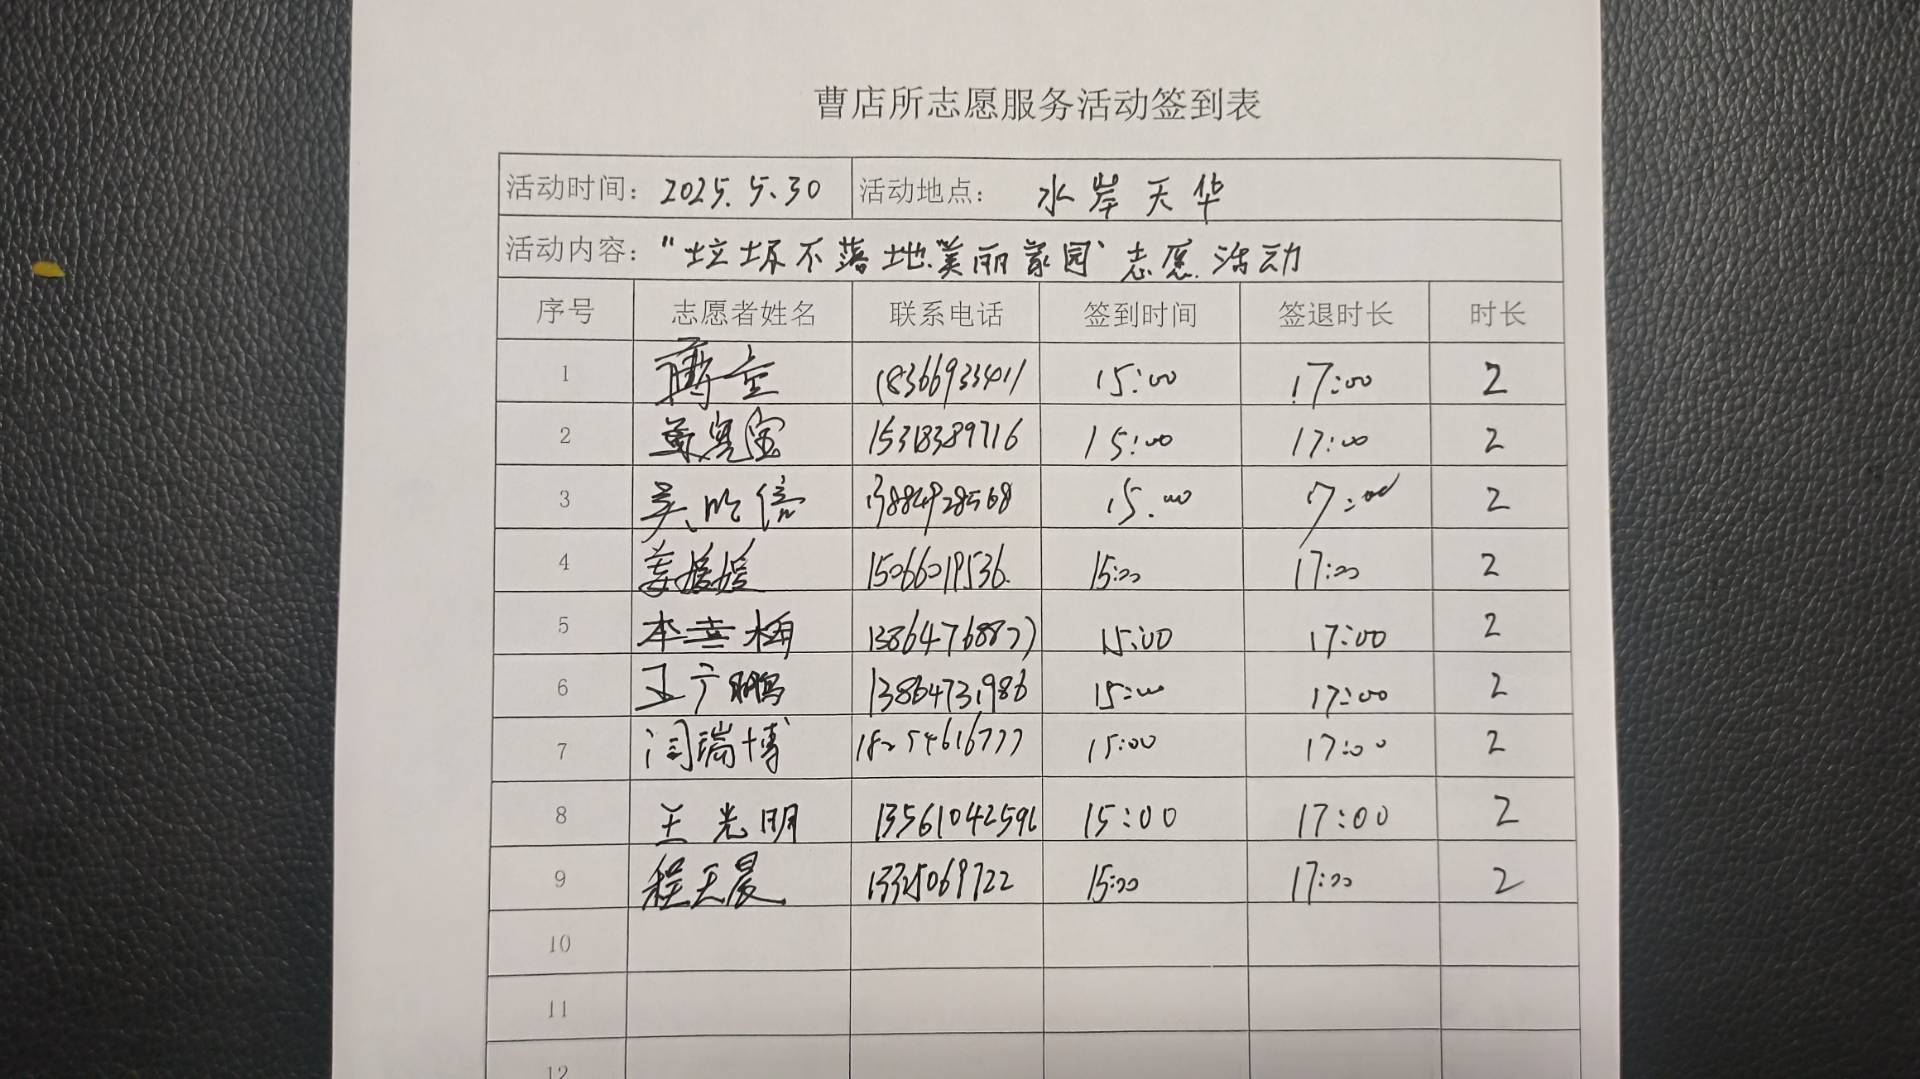 曹店所志愿服务活动签到表
活动时间: 2025.5.30 活动地点: 水岸天华
活动内容: "垃圾不落地.美丽家园"志愿活动
序号 志愿者姓名 联系电话 签到时间 签退时长 时长
1 18366933411 15:00 17:00 2
2 15318389716 15:00 17:00 2
3 13884928568 15:00 17:00 2
4 姜媛媛 15066019536 15:00 17:00 2
5 13864768877 15:00 17:00 2
6 王广鹏 13864731986 15:00 17:00 2
7 闫瑞博 18254616777 15:00 17:00 2
8 王光明 13561042596 15:00 17:00 2
9 程天晨 13325069722 15:00 17:00 2
10
11
12